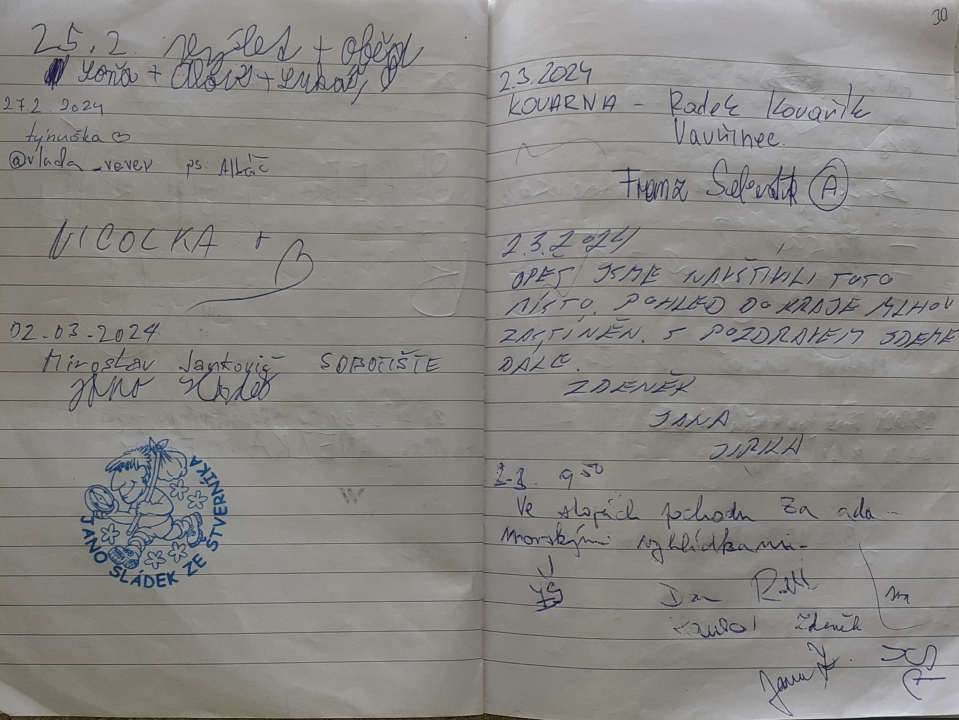 25.2. výšlet + oběd
Soňa + + Lukáš
27.2 2024
týnuška ♡
@vlada_vever ps: Alkáč
NICOLKA +
02.03.2024
Miroslav Jankovič SOBOTIŠTE
JANO SLÁDEK ZE ŠTVERNÍKA
30
2.3.2024
KOVARNA - Radek Kovařík
Vavřinec
Franz A
2.3.2024
OPĚT JSME NAVŠTÍVILI TOTO
MÍSTO. POHLED DO KRAJE MLHOU
ZASTÍNĚN. S POZDRAVEM JDEME
DÁLE.
ZDENĚK
JANA
JIRKA
2.3. 9⁵⁰
Ve stopách pochodu Za ada-
movskými vyhlídkami
Dan
Zdeněk
Jana